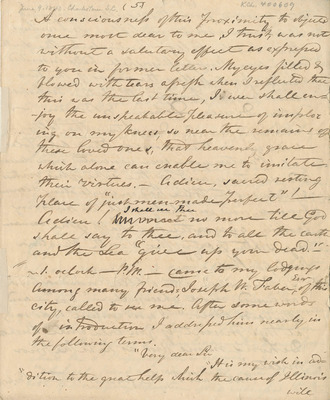 (5)
A consciousness of this proximity to objects
once most dear to me, I trust was not
without a salutary effect as expressed
to you in former letter. My eyes filled &
flowed with tears afresh when I reflected that
this was the last time, I ever shall en-
joy the unspeakable pleasure of implor-
ing on my knees, so near the remains of
these loved ones, that heavenly grace
which alone can enable me to imitate
their virtues. – Adieu, sacred resting
place of "just men made perfect"!
Adieu! I shall see thee
no more till God
shall say to thee, and to all the earth
and the sea "give up your dead."
– 1. oclock – P.M. – came to my lodgings
Among many friends, Joseph W. Faber, Esr. of this
city, called to see me. After some words
of introduction I addressed him nearly in
the following terms.
"Very dear Sir
"It is my wish in ad-
dition to the great help which the cause of Illinois
will